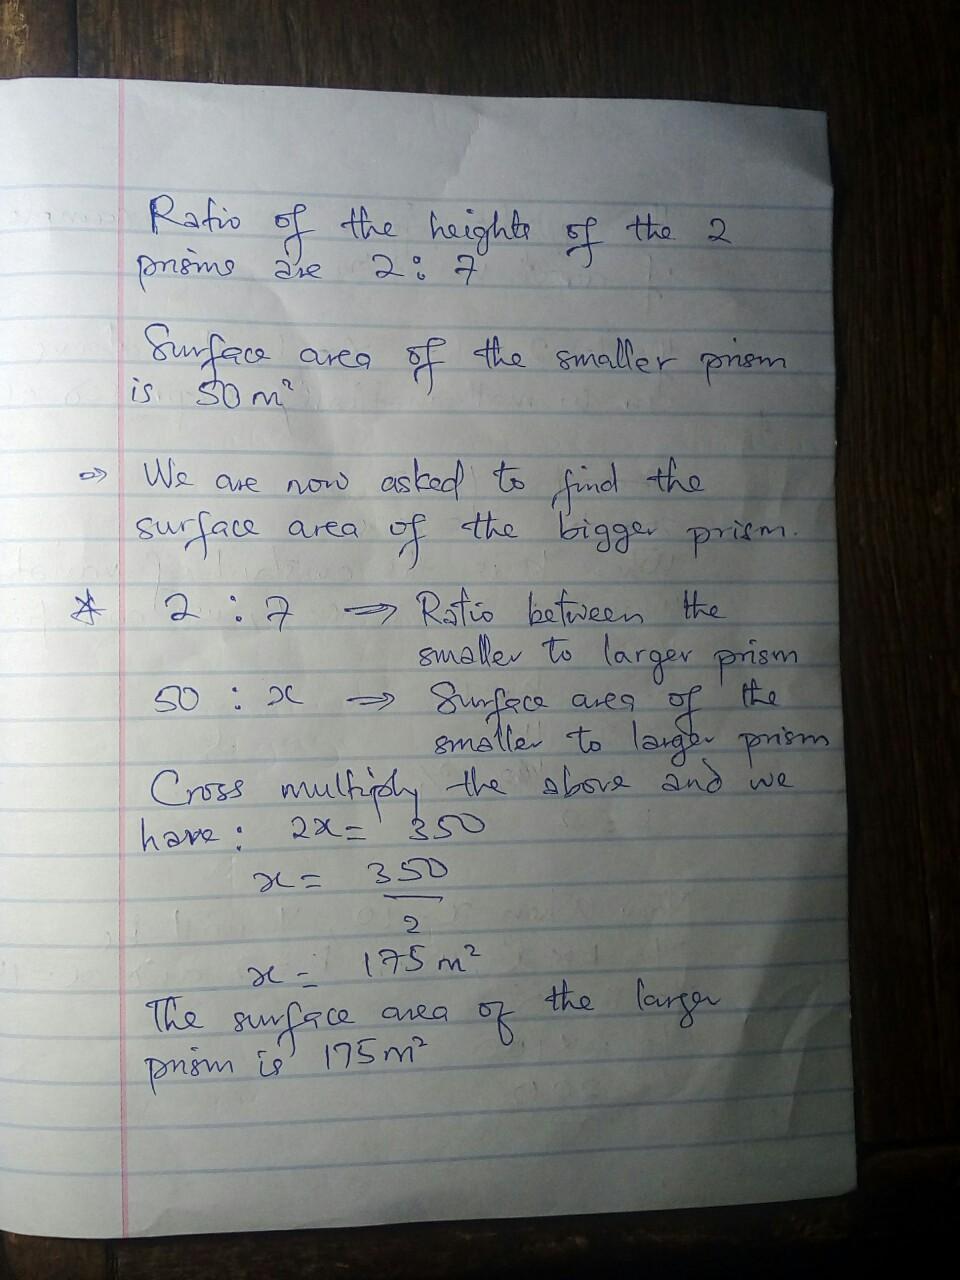 Ratio of the heights of the 2
prisms are 2:7
Surface area of the smaller prism
is 50m²
⇒ We are now asked to find the
surface area of the bigger prism.
* 2 : 7 ⇒ Ratio between the
smaller to larger prism
50 : x ⇒ Surface area of the
smaller to larger prism
Cross multiply the above and we
have: 2x = 350
x = 350
2
x = 175m²
The surface area of the larger
prism is 175m²